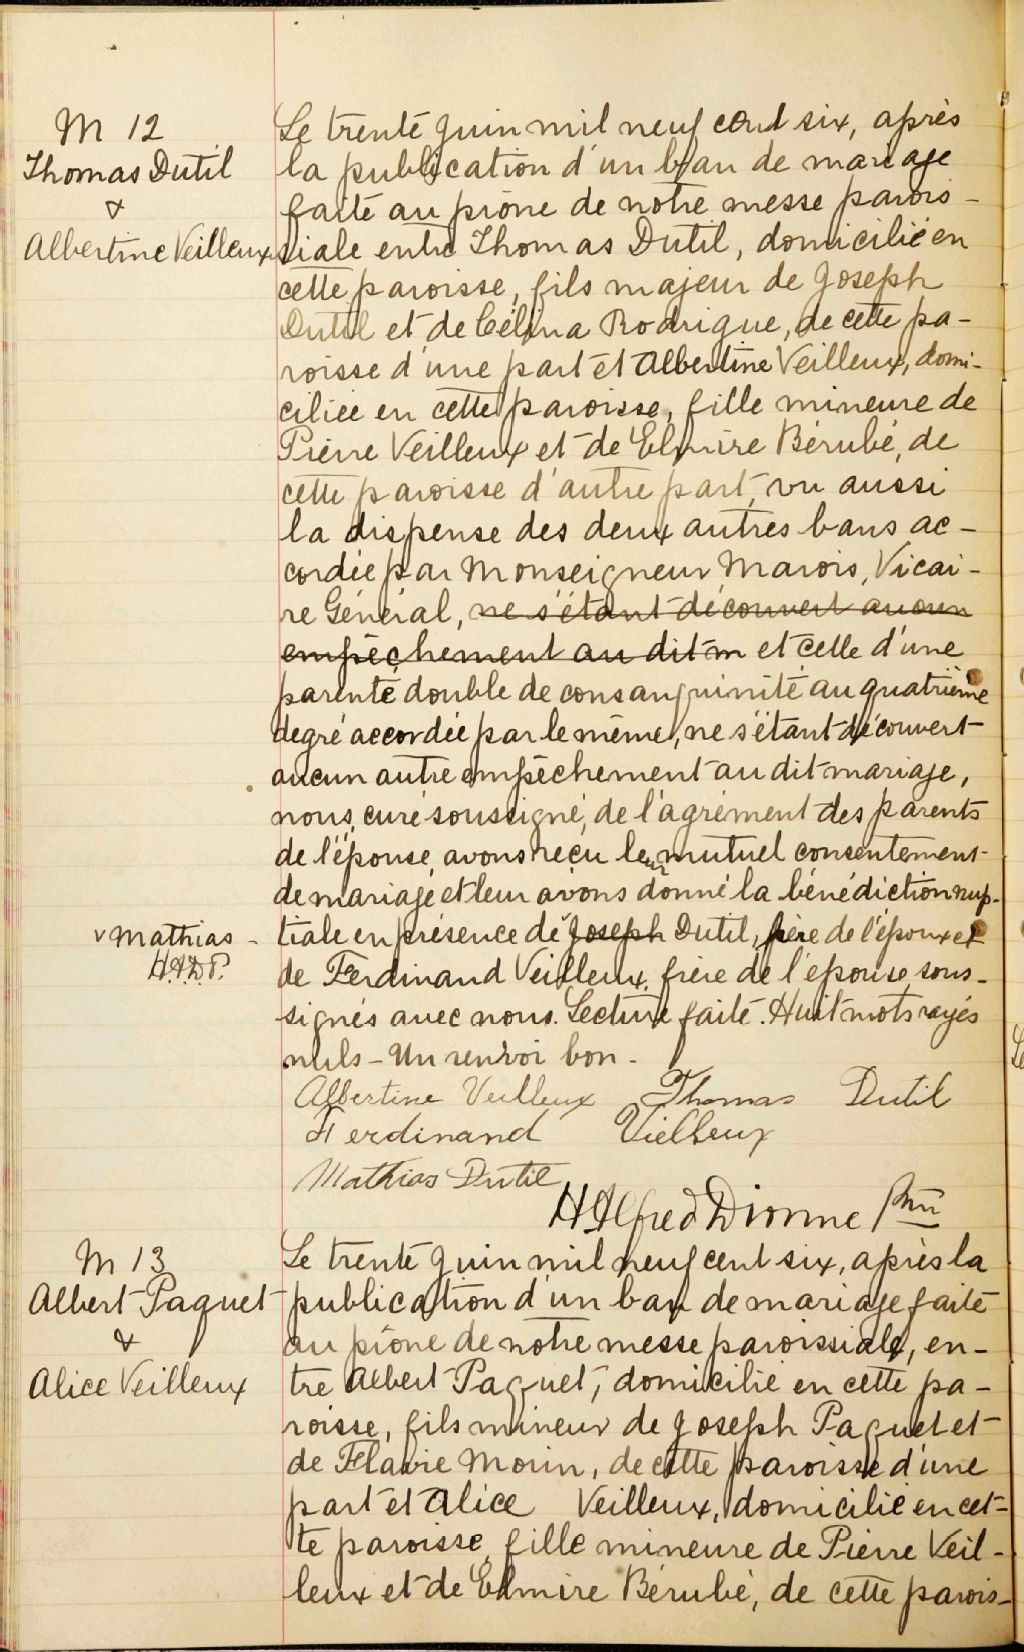 M 12
Thomas Dutil
&
Albertine Veilleux
Le trente Juin mil neuf cent six, après
la publication d'un ban de mariage
faite au prône de notre messe parois-
siale entre Thomas Dutil, domicilié en
cette paroisse, fils majeur de Joseph
Dutil et de Célina Rodrigue, de cette pa-
roisse d'une part et Albertine Veilleux, domi-
ciliée en cette paroisse, fille mineure de
Pierre Veilleux et de Elmire Bérubé, de
cette paroisse d'autre part, vu aussi
la dispense des deux autres bans ac-
cordée par Monseigneur Marois, Vicai-
re Général, ne s'étant découvert aucun
empêchement au dit m et celle d'une
parenté double de consanguinité au quatrième
degré accordée par le même, ne s'étant découvert
aucun autre empêchement au dit mariage,
nous, curé soussigné, de l'agrément des parents
de l'épouse, avons reçu leur mutuel consentement
de mariage et leur avons donné la bénédiction nup-
v Mathias -
H.A.D.P.
tiale en présence de Joseph Dutil, père de l'époux et
de Ferdinand Veilleux, frère de l'épouse, sous-
signés avec nous. Lecture faite. Huit mots rayés
nuls - Un renvoi bon -
Albertine Veilleux Thomas Dutil
Ferdinand Vielleux
Mathias Dutil
H Alfred Dionne Ptre
M 13
Albert Paquet
&
Alice Veilleux
Le trente Juin mil neuf cent six, après la
publication d'un ban de mariage faite
au prône de notre messe paroissiale, en-
tre Albert Paquet, domicilié en cette pa-
roisse, fils mineur de Joseph Paquet et
de Flavie Morin, de cette paroisse d'une
part et Alice Veilleux, domicilié en cet-
te paroisse, fille mineure de Pierre Veil-
leux et de Elmire Bérubé, de cette parois-